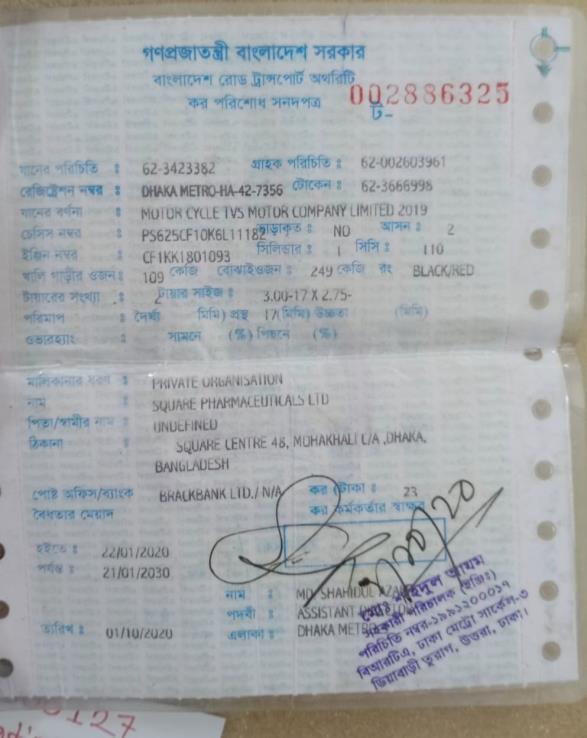 গণপ্রজাতন্ত্রী বাংলাদেশ সরকার
বাংলাদেশ রোড ট্রান্সপোর্ট অথরিটি
কর পরিশোধ সনদপত্র
002886325
ট-
যানের পরিচিতি : 62-3423382 গ্রাহক পরিচিতি : 62-002603961
রেজিষ্ট্রেশন নম্বর : DHAKA METRO-HA-42-7356 টোকেন : 62-3666998
যানের বর্ণনা : MOTOR CYCLE TVS MOTOR COMPANY LIMITED 2019
চেসিস নম্বর : PS625CF10K6L11182 ভাড়াকৃত : NO আসন : 2
ইঞ্জিন নম্বর : CF1KK1801093 সিলিন্ডার : 1 সিসি : 110
খালি গাড়ীর ওজন : 109 কেজি বোঝাইওজন : 249 কেজি রং BLACK/RED
টায়ারের সংখ্যা : 2 টায়ার সাইজ : 3.00-17 X 2.75-
পরিমাপ : দৈর্ঘ্য (মিমি) প্রস্থ 17 (মিমি) উচ্চতা (মিমি)
ওভারহ্যাং : সামনে (%) পিছনে (%)
মালিকানার ধরণ : PRIVATE ORGANISATION
নাম : SQUARE PHARMACEUTICALS LTD
পিতা/স্বামীর নাম : UNDEFINED
ঠিকানা : SQUARE CENTRE 48, MOHAKHALI C/A ,DHAKA,
BANGLADESH
পোষ্ট অফিস/ব্যাংক BRACKBANK LTD./ N/A কর (টাকা) : 23
বৈধতার মেয়াদ কর কর্মকর্তার স্বাক্ষর
হইতে : 22/01/2020
পর্যন্ত : 21/01/2030
নাম : MD. SHAHIDUL AZAM
পদবী : ASSISTANT
তারিখ : 01/10/2020 এলাকা : DHAKA METRO
মোঃ শহিদুল আযম
সহকারী পরিচালক (ইঞ্জিঃ)
পরিচিতি নম্বর-১৯৯১২০০০১৭
বিআরটিএ, ঢাকা মেট্রো সার্কেল-৩
দিয়াবাড়ী তুরাগ, উত্তরা, ঢাকা।